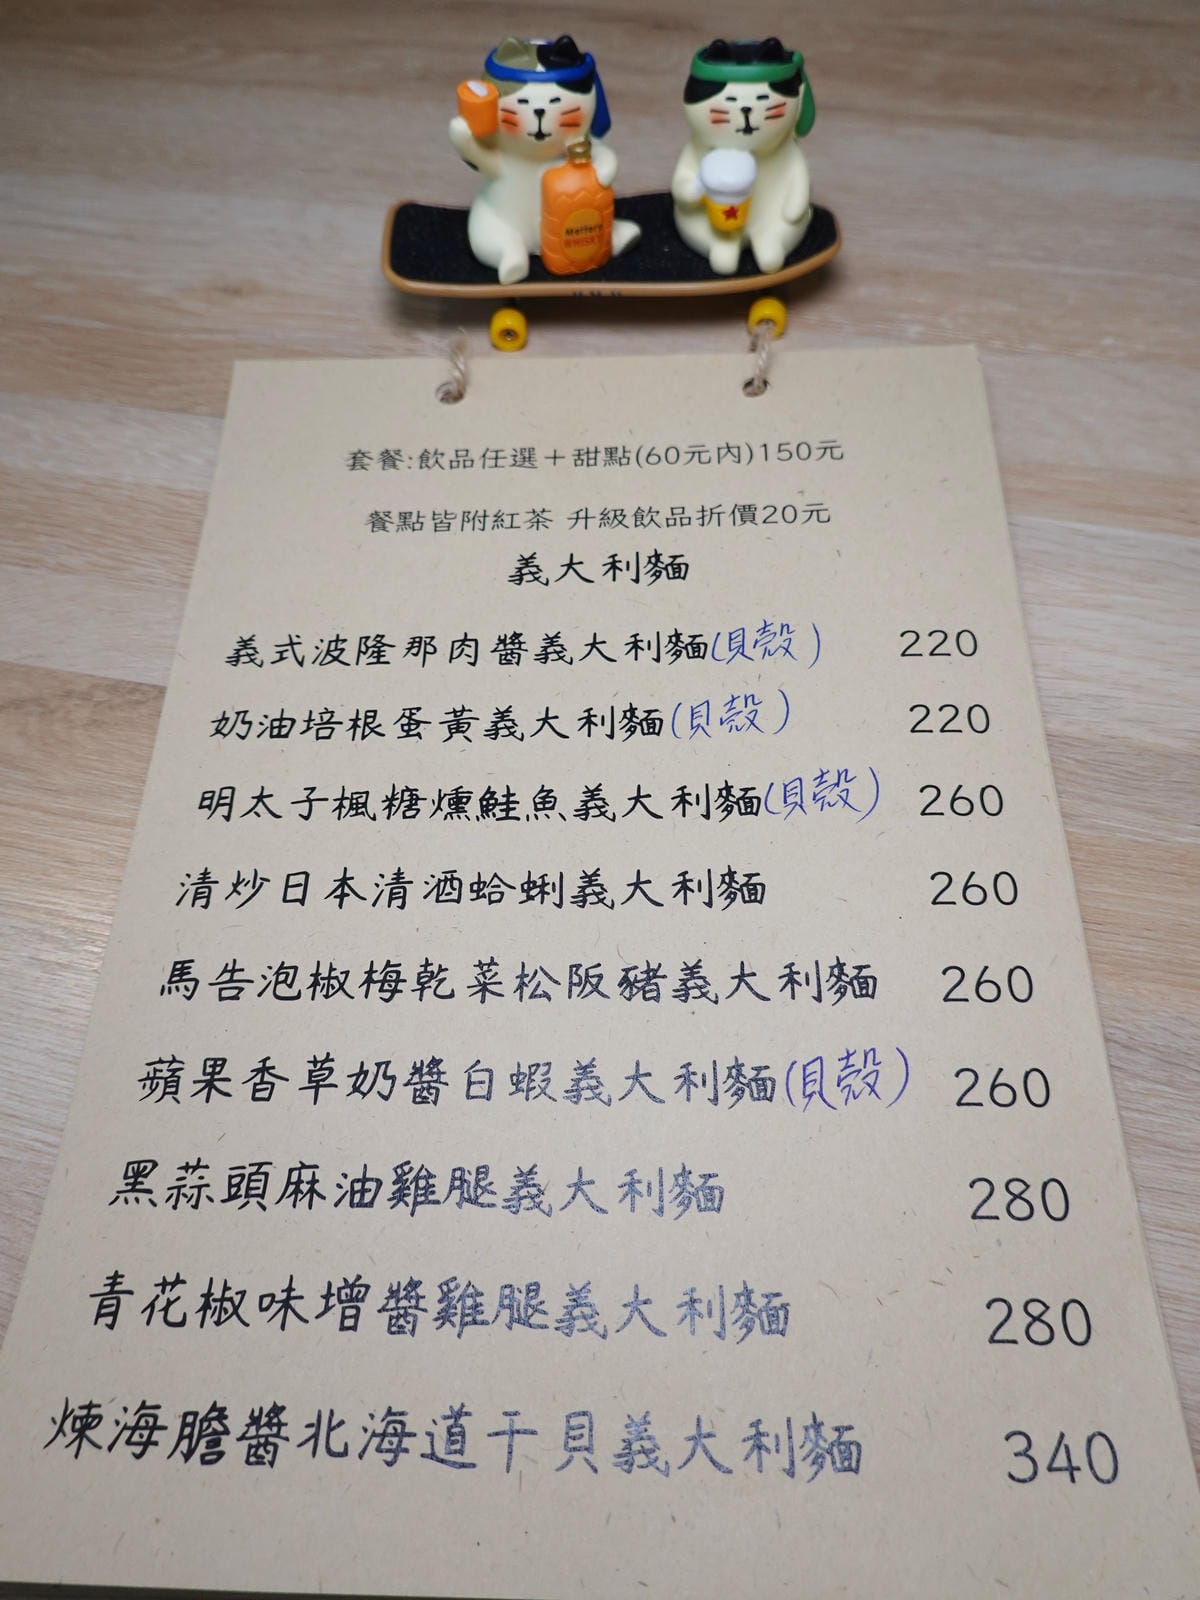 Mattery
WHISKY
套餐:飲品任選+甜點(60元內)150元
餐點皆附紅茶 升級飲品折價20元
義大利麵
義式波隆那肉醬義大利麵(貝殼) 220
奶油培根蛋黃義大利麵(貝殼) 220
明太子楓糖燻鮭魚義大利麵(貝殼) 260
清炒日本清酒蛤蜊義大利麵 260
馬告泡椒梅乾菜松阪豬義大利麵 260
蘋果香草奶醬白蝦義大利麵(貝殼) 260
黑蒜頭麻油雞腿義大利麵 280
青花椒味增醬雞腿義大利麵 280
煉海膽醬北海道干貝義大利麵 340